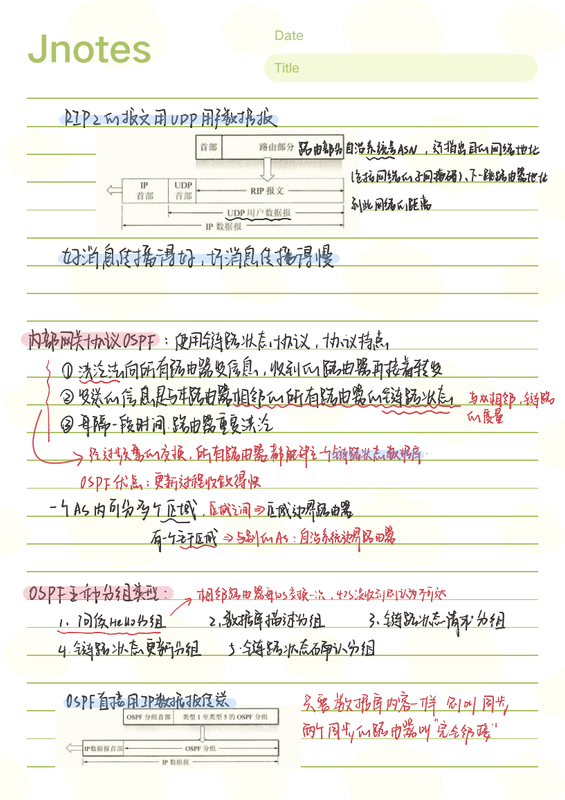 Jnotes
Date
Title
RIP2的报文用UDP用户数据报
首部 路由部分 路由部分自治系统号ASN，须指出目的网络地址
(包括网络的子网掩码)、下一跳路由器地址
到此网络的距离
IP 首部 UDP 首部 RIP 报文
UDP 用户数据报
IP 数据报
好消息传播得好，坏消息传播得慢
内部网关协议OSPF：使用链路状态协议，协议特点
① 洪泛法向所有路由器发信息，收到的路由器再接着转发
② 发送的信息是与本路由器相邻的所有路由器的链路状态
与双相邻，链路
的度量
③ 每隔一段时间，路由器重复洪泛
经过频繁的交换，所有路由器都能建立一个链路状态数据库
OSPF优点：更新过程收敛得快
一个AS内可分多个区域，区域之间⇒区域边界路由器
有一个主干区域 ⇒与别的AS：自治系统边界路由器
OSPF五种分组类型：
相邻路由器每10S交换一次，40S没收到则认为不可达
1、问候Hello分组 2、数据库描述分组 3、链路状态请求分组
4、链路状态更新分组 5、链路状态确认分组
OSPF直接用IP数据报传送
OSPF 分组首部 类型 1 至类型 5 的 OSPF 分组
IP数据报首部 OSPF 分组
IP 数据报
只要数据库内容一样 则叫同步，
两个同步的路由器叫"完全邻接"